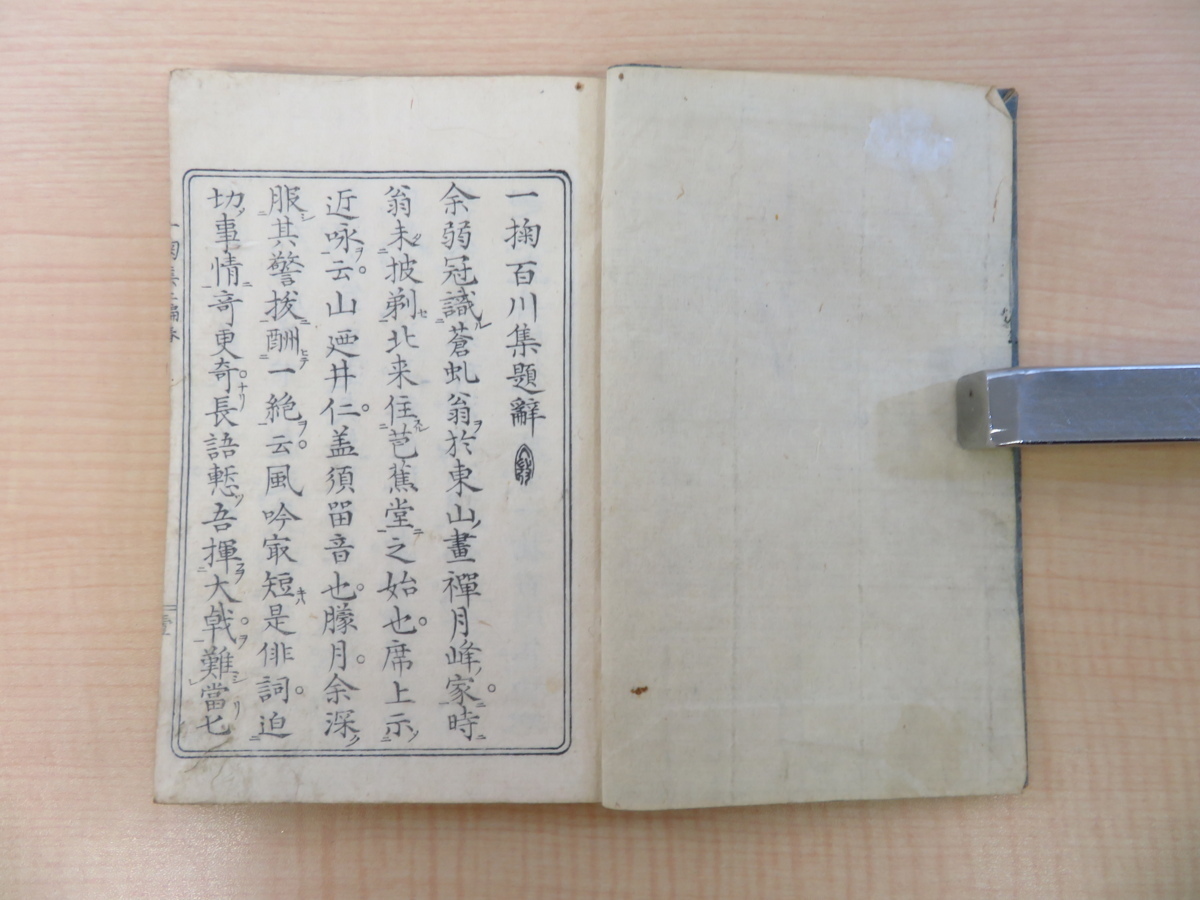 一掬百川集題辭
余弱冠識蒼虬翁於東山畫禪月峰家時
翁未披剃北来住芭蕉堂之始也席上示
近咏云山廼井仁盖須留音也朦月余深
服其警拔酬一絶云風吟㝡短是俳詞迫
切事情奇更奇長語慙吾揮大戟難當匕